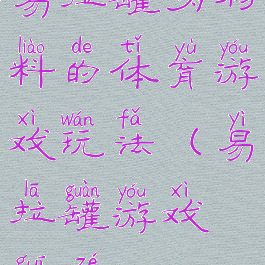 易拉罐为材
liào de tǐ yù yóu
料的体育游
xì wán fǎ yì
戏玩法（易
lā guàn yóu xì
拉罐游戏
guī zé